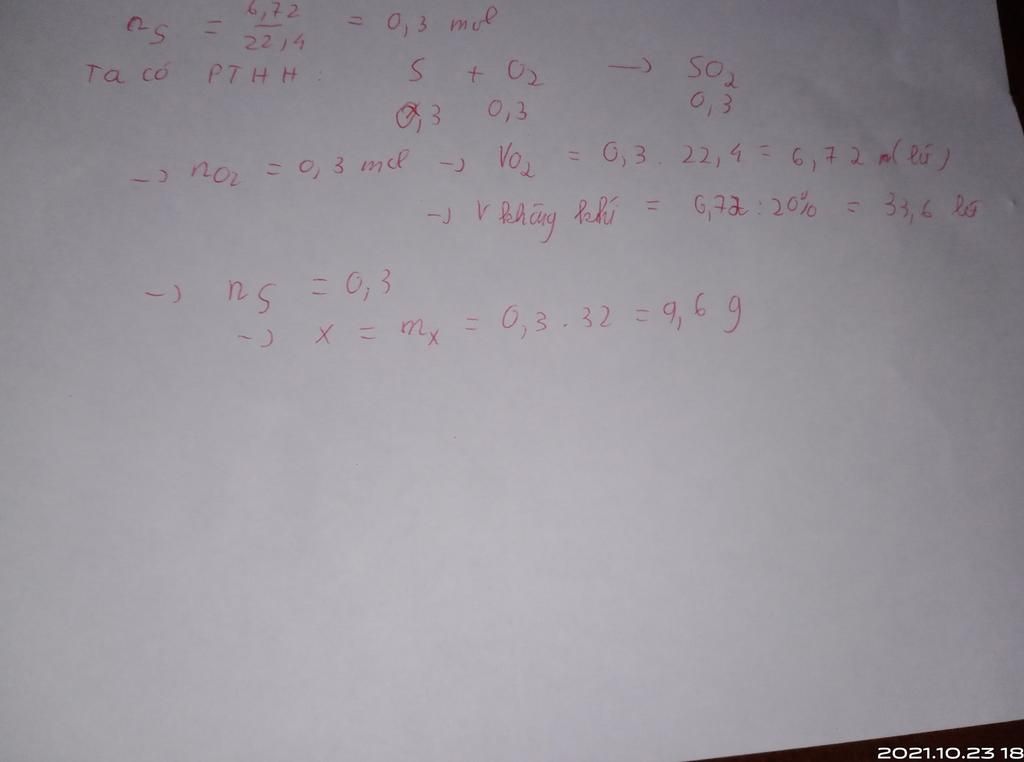 nS = 6,72 / 22,4 = 0,3 mol
Ta có PTHH : S + O2 → SO2
0,3 0,3 0,3
→ nO2 = 0,3 mol → VO2 = 0,3 . 22,4 = 6,72 (lít)
→ V không khí = 6,72 : 20% = 33,6 lít
→ nS = 0,3
→ x = mx = 0,3 . 32 = 9,6 g
2021.10.23 18